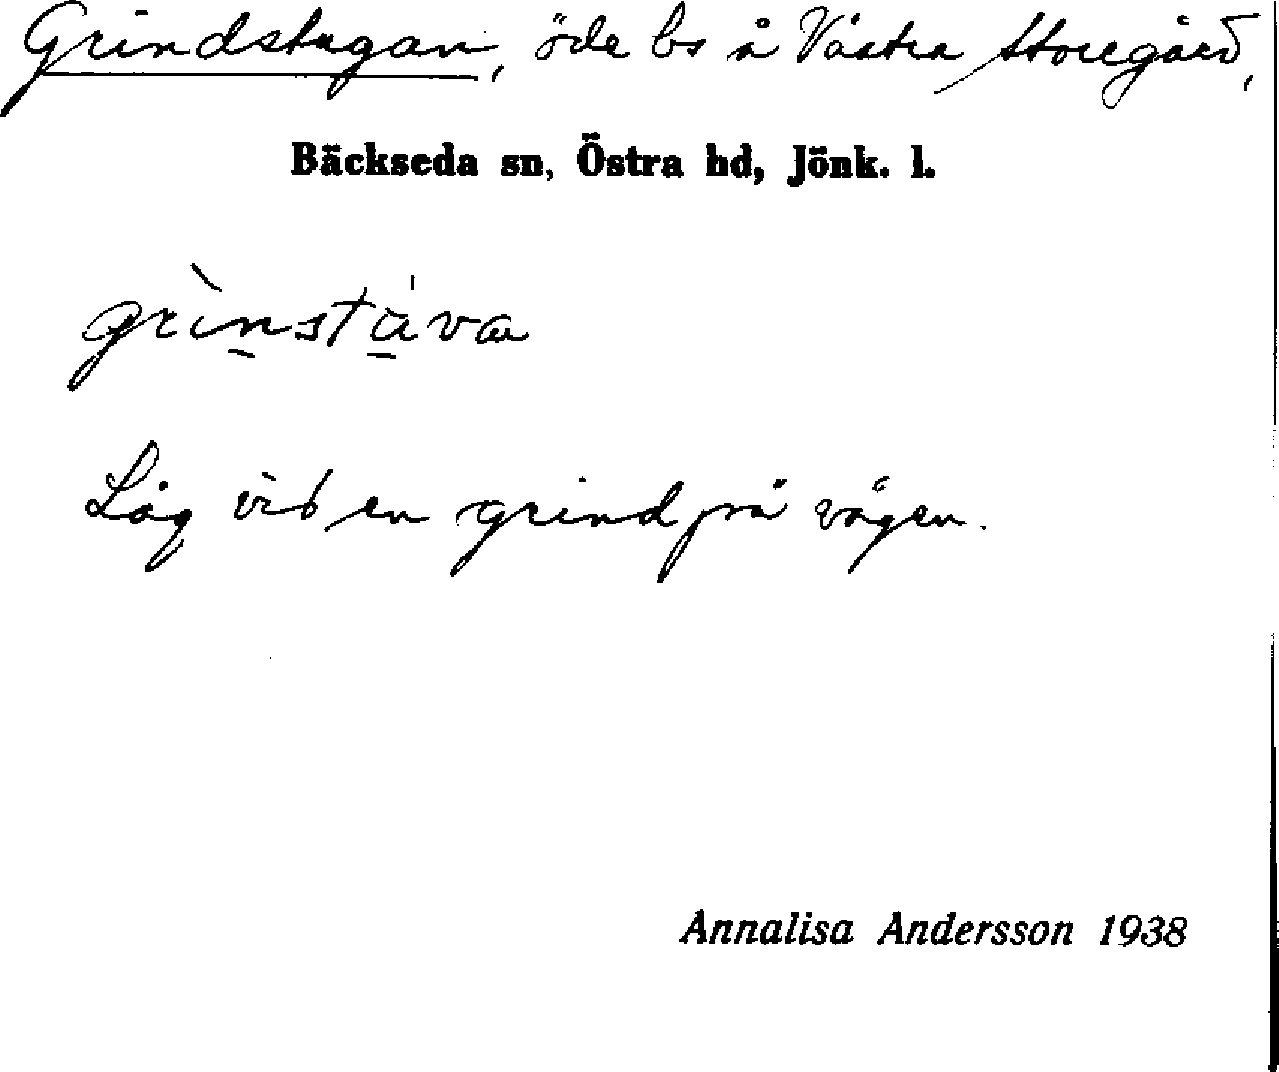 Grindstugan, öde bs å Västra Storegård,
Bäckseda sn, Östra hd, Jönk. l.
grinstáva
Låg vid en grind på vägen.
Annalisa Andersson 1938